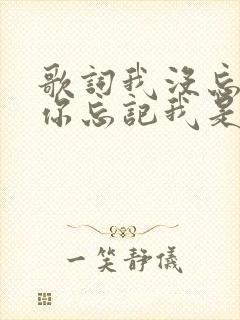 歌詞我沒忘
你忘記我是
一笑靜儀